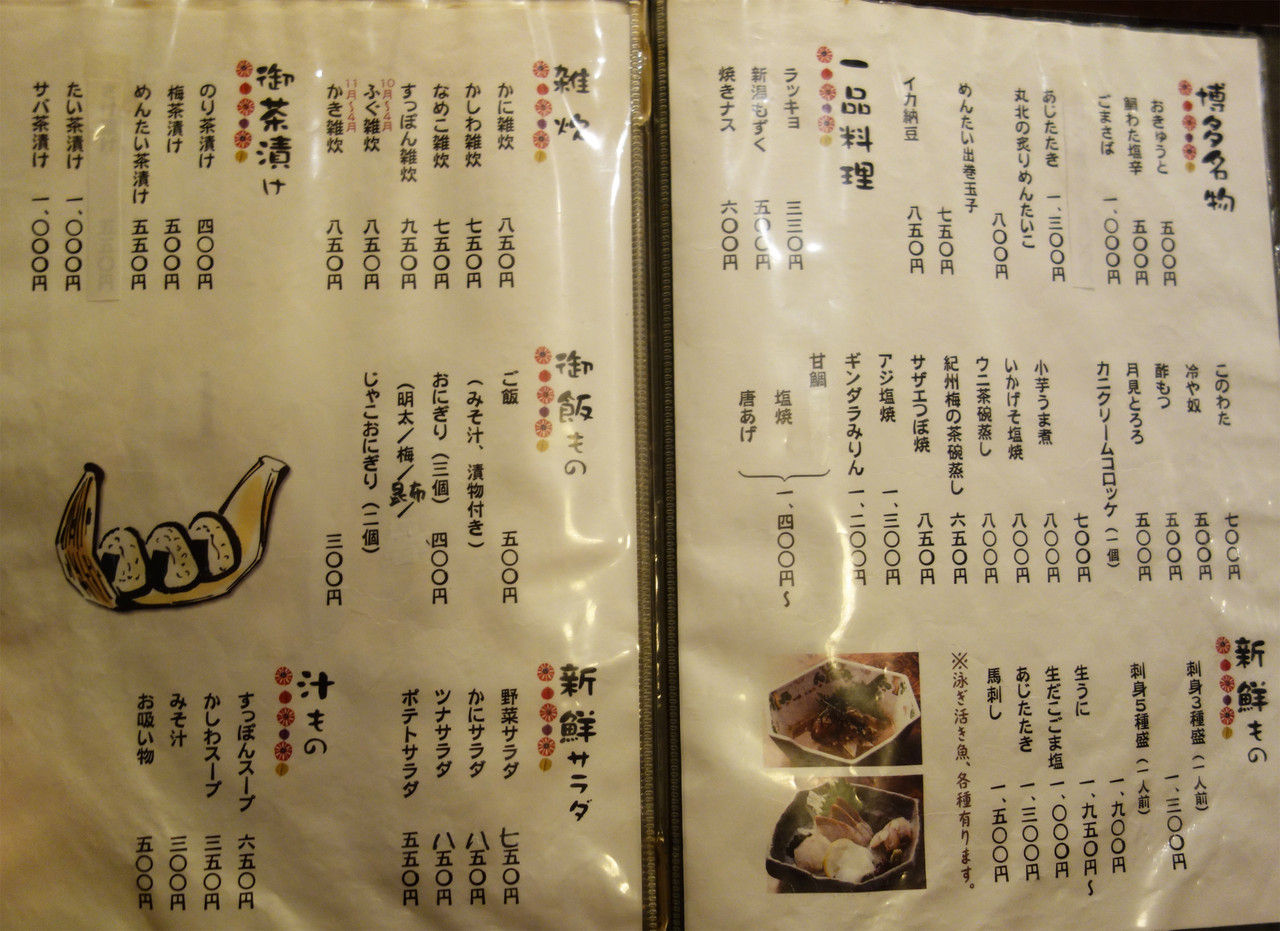 博多名物
おきゅうと 五〇〇円
鯛わた塩辛 五〇〇円
ごまさば 一、〇〇〇円
あじたたき 一、三〇〇円
丸北の炙りめんたいこ 八〇〇円
めんたい出巻玉子 七五〇円
イカ納豆 八五〇円
一品料理
ラッキョ 三三〇円
新潟もずく 五〇〇円
焼きナス 六〇〇円
このわた 七〇〇円
冷や奴 五〇〇円
酢もつ 五〇〇円
月見とろろ 五〇〇円
カニクリームコロッケ（一個） 七〇〇円
小芋うま煮 八〇〇円
いかげそ塩焼 八〇〇円
ウニ茶碗蒸し 八〇〇円
紀州梅の茶碗蒸し 六五〇円
サザエつぼ焼 八五〇円
アジ塩焼 一、三〇〇円
ギンダラみりん 一、二〇〇円
甘鯛
塩焼
唐あげ
一、四〇〇円～
新鮮もの
刺身３種盛（一人前） 一、三〇〇円
刺身５種盛（一人前） 一、九〇〇円
生うに 一、九五〇円～
生だこごま塩 一、〇〇〇円
あじたたき 一、三〇〇円
馬刺し 一、五〇〇円
※泳ぎ活き魚、各種有ります。
雑炊
かに雑炊 八五〇円
かしわ雑炊 七五〇円
なめこ雑炊 七五〇円
すっぽん雑炊 九五〇円
10月～4月
ふぐ雑炊 八五〇円
11月～4月
かき雑炊 八五〇円
御茶漬け
のり茶漬け 四〇〇円
梅茶漬け 五〇〇円
めんたい茶漬け 五五〇円
たい茶漬け 一、〇〇〇円
サバ茶漬け 一、〇〇〇円
御飯もの
ご飯 五〇〇円
（みそ汁、漬物付き）
おにぎり（三個） 四〇〇円
（明太／梅／昆布／
じゃこおにぎり（二個） 三〇〇円
新鮮サラダ
野菜サラダ 七五〇円
かにサラダ 八五〇円
ツナサラダ 八五〇円
ポテトサラダ 五五〇円
汁もの
すっぽんスープ 六五〇円
かしわスープ 三五〇円
みそ汁 三〇〇円
お吸い物 五〇〇円